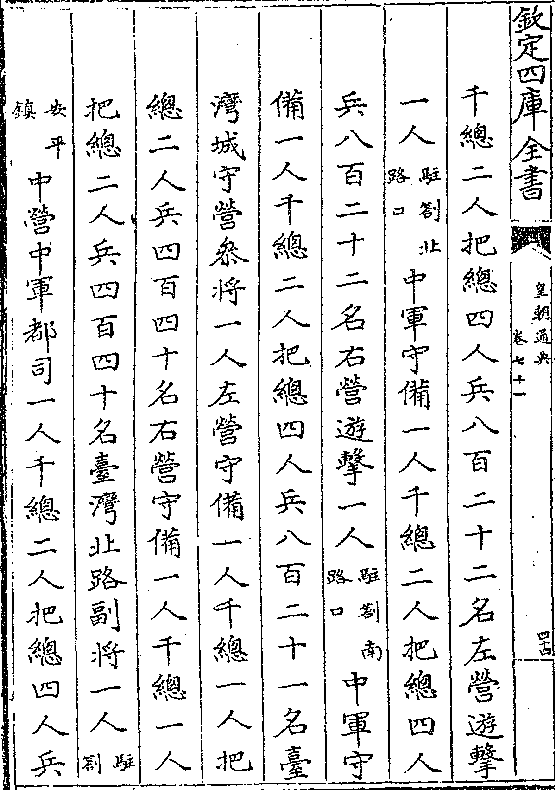 欽定四庫全書
皇朝通典
卷七十一
千總二人把總四人兵八百二十二名左營遊擊
一人駐劄北路口中軍守備一人千總二人把總四人
兵八百二十二名右營遊擊一人駐劄南路口中軍守
備一人千總二人把總四人兵八百二十一名臺
灣城守營叅將一人左營守備一人千總一人把
總二人兵四百四十名右營守備一人千總一人
把總二人兵四百四十名臺灣北路副將一人駐劄
安平鎮中營中軍都司一人千總二人把總四人兵